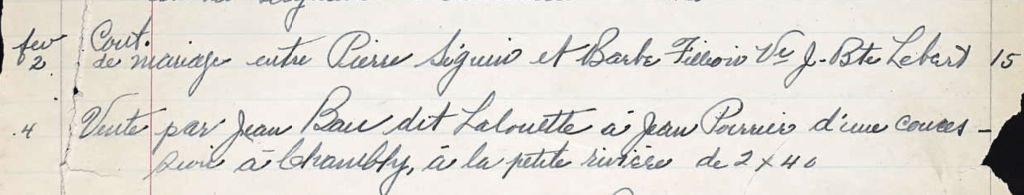 fev Cont.
2 de mariage entre Pierre Seguin et Barbe Fillion Ve J-Bte Lebert 15
4 Vente par Jean Bau dit Lalouette à Jean Poirrier d'une conces-
sion à Chambly, à la petite rivière de 2 x 40